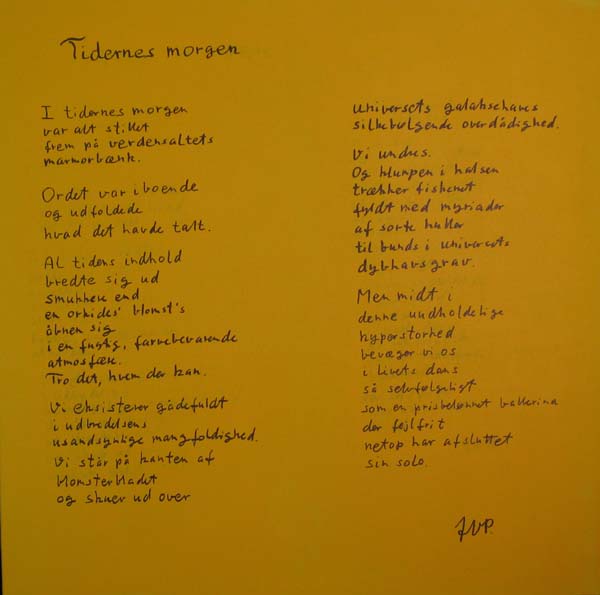 Tidernes morgen
I tidernes morgen
var alt stillet
frem på verdensaltets
marmorbænk.
Ordet var iboende
og udfoldede
hvad det havde talt.
Al tidens indhold
bredte sig ud
smukkere end
en orkides' blomst's
åbnen sig
i en fugtig, farvebevarende
atmosfære.
Tro det, hvem der kan.
Vi eksisterer gådefuldt
i udbredelsens
usandsynlige mangfoldighed.
Vi står på kanten af
blomsterbladet
og skuer ud over
universets galakschaves
silkebølgende overdådighed.
Vi undres.
Og klumpen i halsen
trækker fiskenet
fyldt med myriader
af sorte huller
til bunds i universets
dybhavsgrav.
Men midt i
denne uudholdelige
hyperstorhed
bevæger vi os
i livets dans
så selvfølgeligt
som en prisbelønnet ballerina
der fejlfrit
netop har afsluttet
sin solo.
JVP.